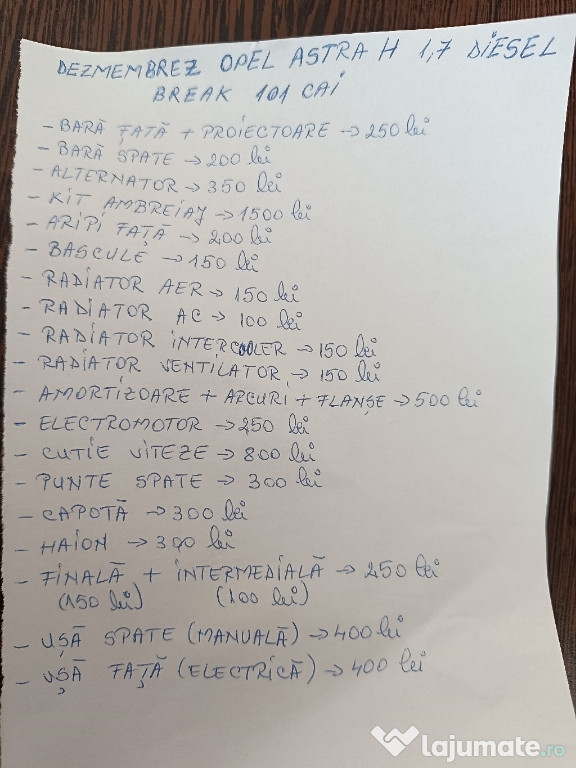 DEZMEMBREZ OPEL ASTRA H 1,7 DIESEL
BREAK 101 CAI
- BARĂ FAȚĂ + PROIECTOARE → 250 lei
- BARĂ SPATE → 200 lei
- ALTERNATOR → 350 lei
- KIT AMBREIAJ → 1500 lei
- ARIPI FAȚĂ → 200 lei
- BASCULE → 150 lei
- RADIATOR AER → 150 lei
- RADIATOR AC → 100 lei
- RADIATOR INTERCOOLER → 150 lei
- RADIATOR VENTILATOR → 150 lei
- AMORTIZOARE + ARCURI + FLANȘE → 500 lei
- ELECTROMOTOR → 250 lei
- CUTIE VITEZE → 800 lei
- PUNTE SPATE → 300 lei
- CAPOTĂ → 300 lei
- HAION → 300 lei
- FINALĂ + INTERMEDIALĂ → 250 lei
(150 lei) (100 lei)
- UȘĂ SPATE (MANUALĂ) → 400 lei
- UȘĂ FAȚĂ (ELECTRICĂ) → 400 lei
lajumate.ro